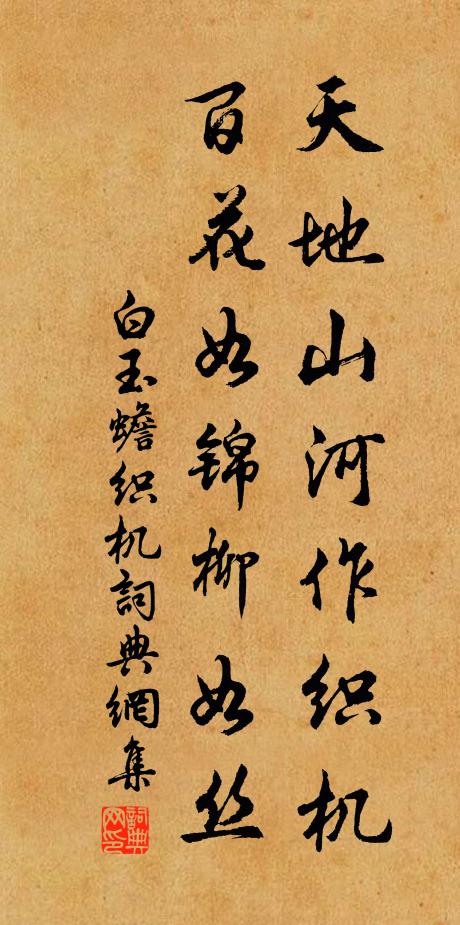 天地山河作织机
百花如锦柳如丝
白玉蟾织机詞典網集
詞典网印